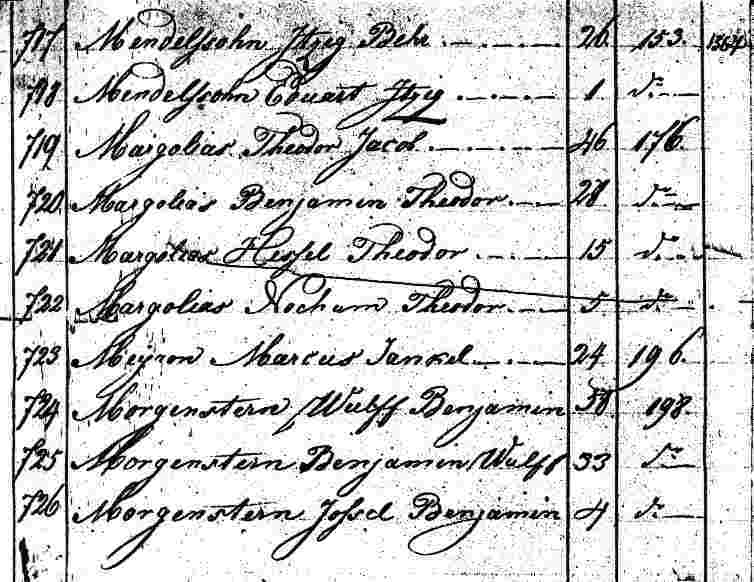 717 Mendelssohn Itzig Behr 26 153. 1364
718 Mendelssohn Eduart Itzig 1 do
719 Margolias Theodor Jacob 46 176.
720. Margolias Benjamin Theodor 28 do
721 Margolias Hessel Theodor 15 do
722 Margolias Nochum Theodor 5 do
723 Meyron Marcus Jankel 24 196.
724 Morgenstern Wulff Benjamin 58 198.
725 Morgenstern Benjamin Wulff 33 do
726 Morgenstern Jossel Benjamin 4 do